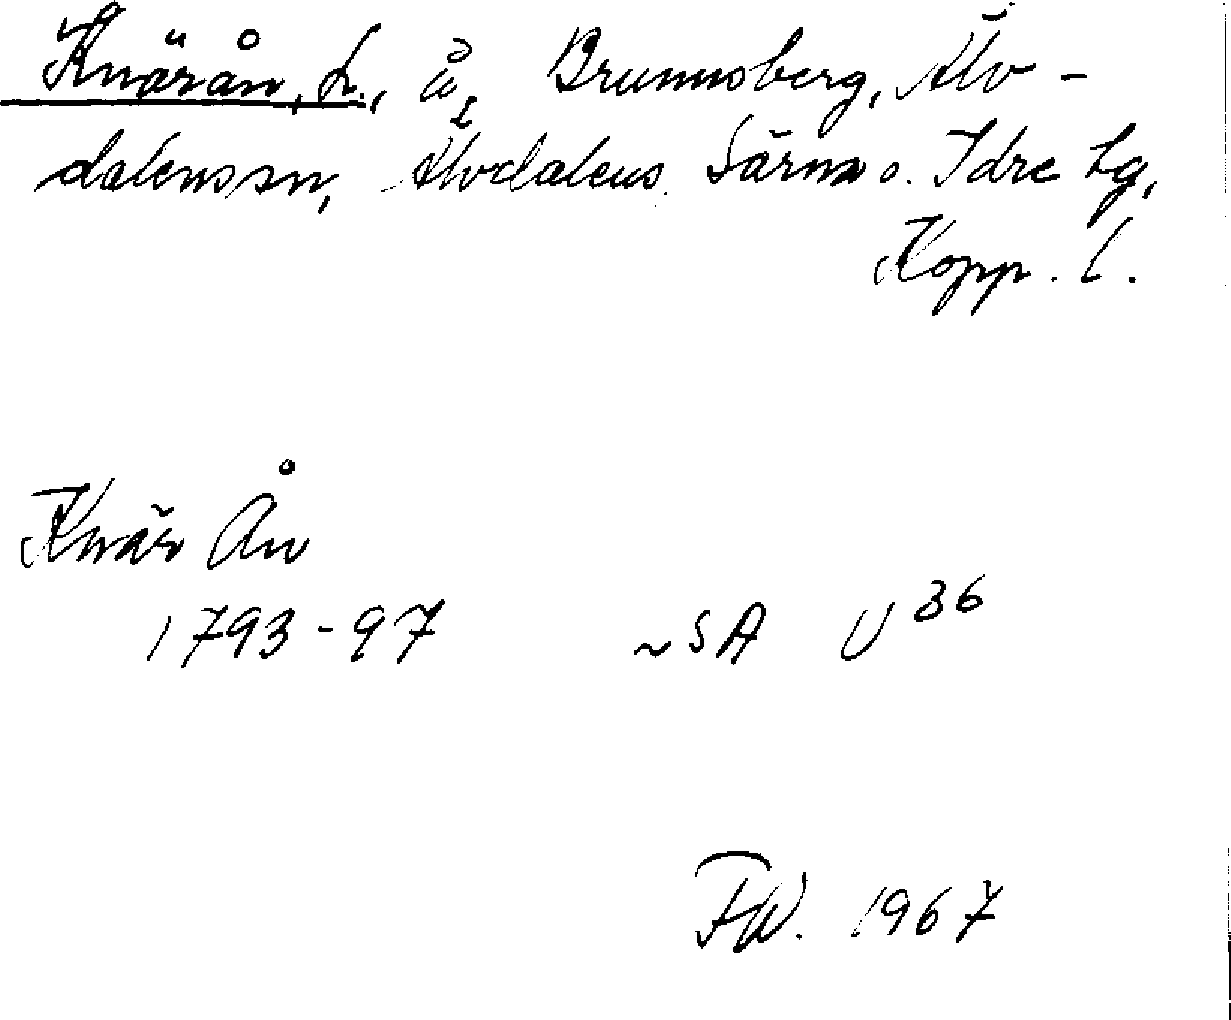 Knärån, L., å, Brunnsberg, Älv-
dalens sn, Älvdalens Särna o. Idre tg,
Kopp. l.
Knär Ån
1793-97 LSA U 36
FW. 1967